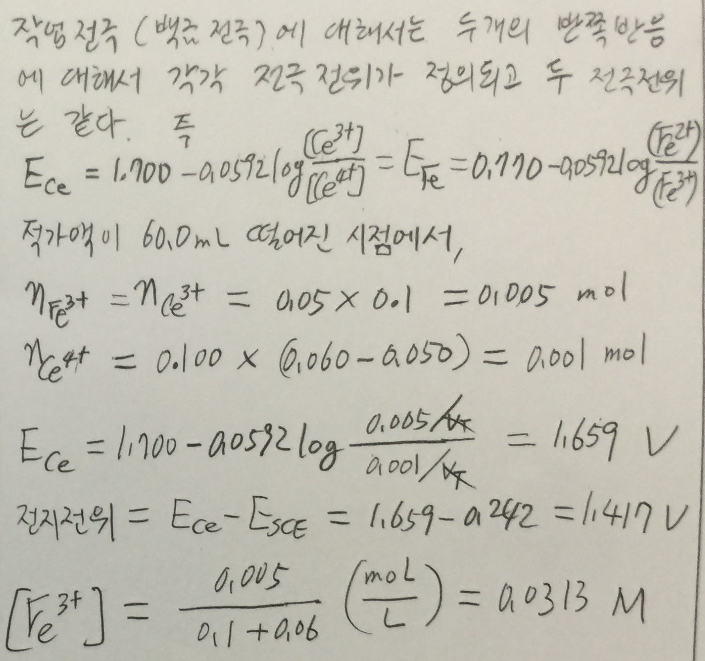 작업전극 (백금전극)에 대해서는 두개의 반쪽반응
에 대해서 각각 전극 전위가 정의되고 두 전극전위
는 같다. 즉
E_Ce = 1.700 - 0.0592 log [Ce³⁺]/[Ce⁴⁺] = E_Fe = 0.770 - 0.0592 log (Fe²⁺)/(Fe³⁺)
적가액이 60.0mL 떨어진 시점에서,
n_Fe³⁺ = n_Ce³⁺ = 0.05 × 0.1 = 0.005 mol
n_Ce⁴⁺ = 0.100 × (0.060 - 0.050) = 0.001 mol
E_Ce = 1.700 - 0.0592 log (0.005/V_T)/(0.001/V_T) = 1.659 V
전지전위 = E_Ce - E_SCE = 1.659 - 0.242 = 1.417 V
[Fe³⁺] = 0.005/(0.1 + 0.06) (moL/L) = 0.0313 M